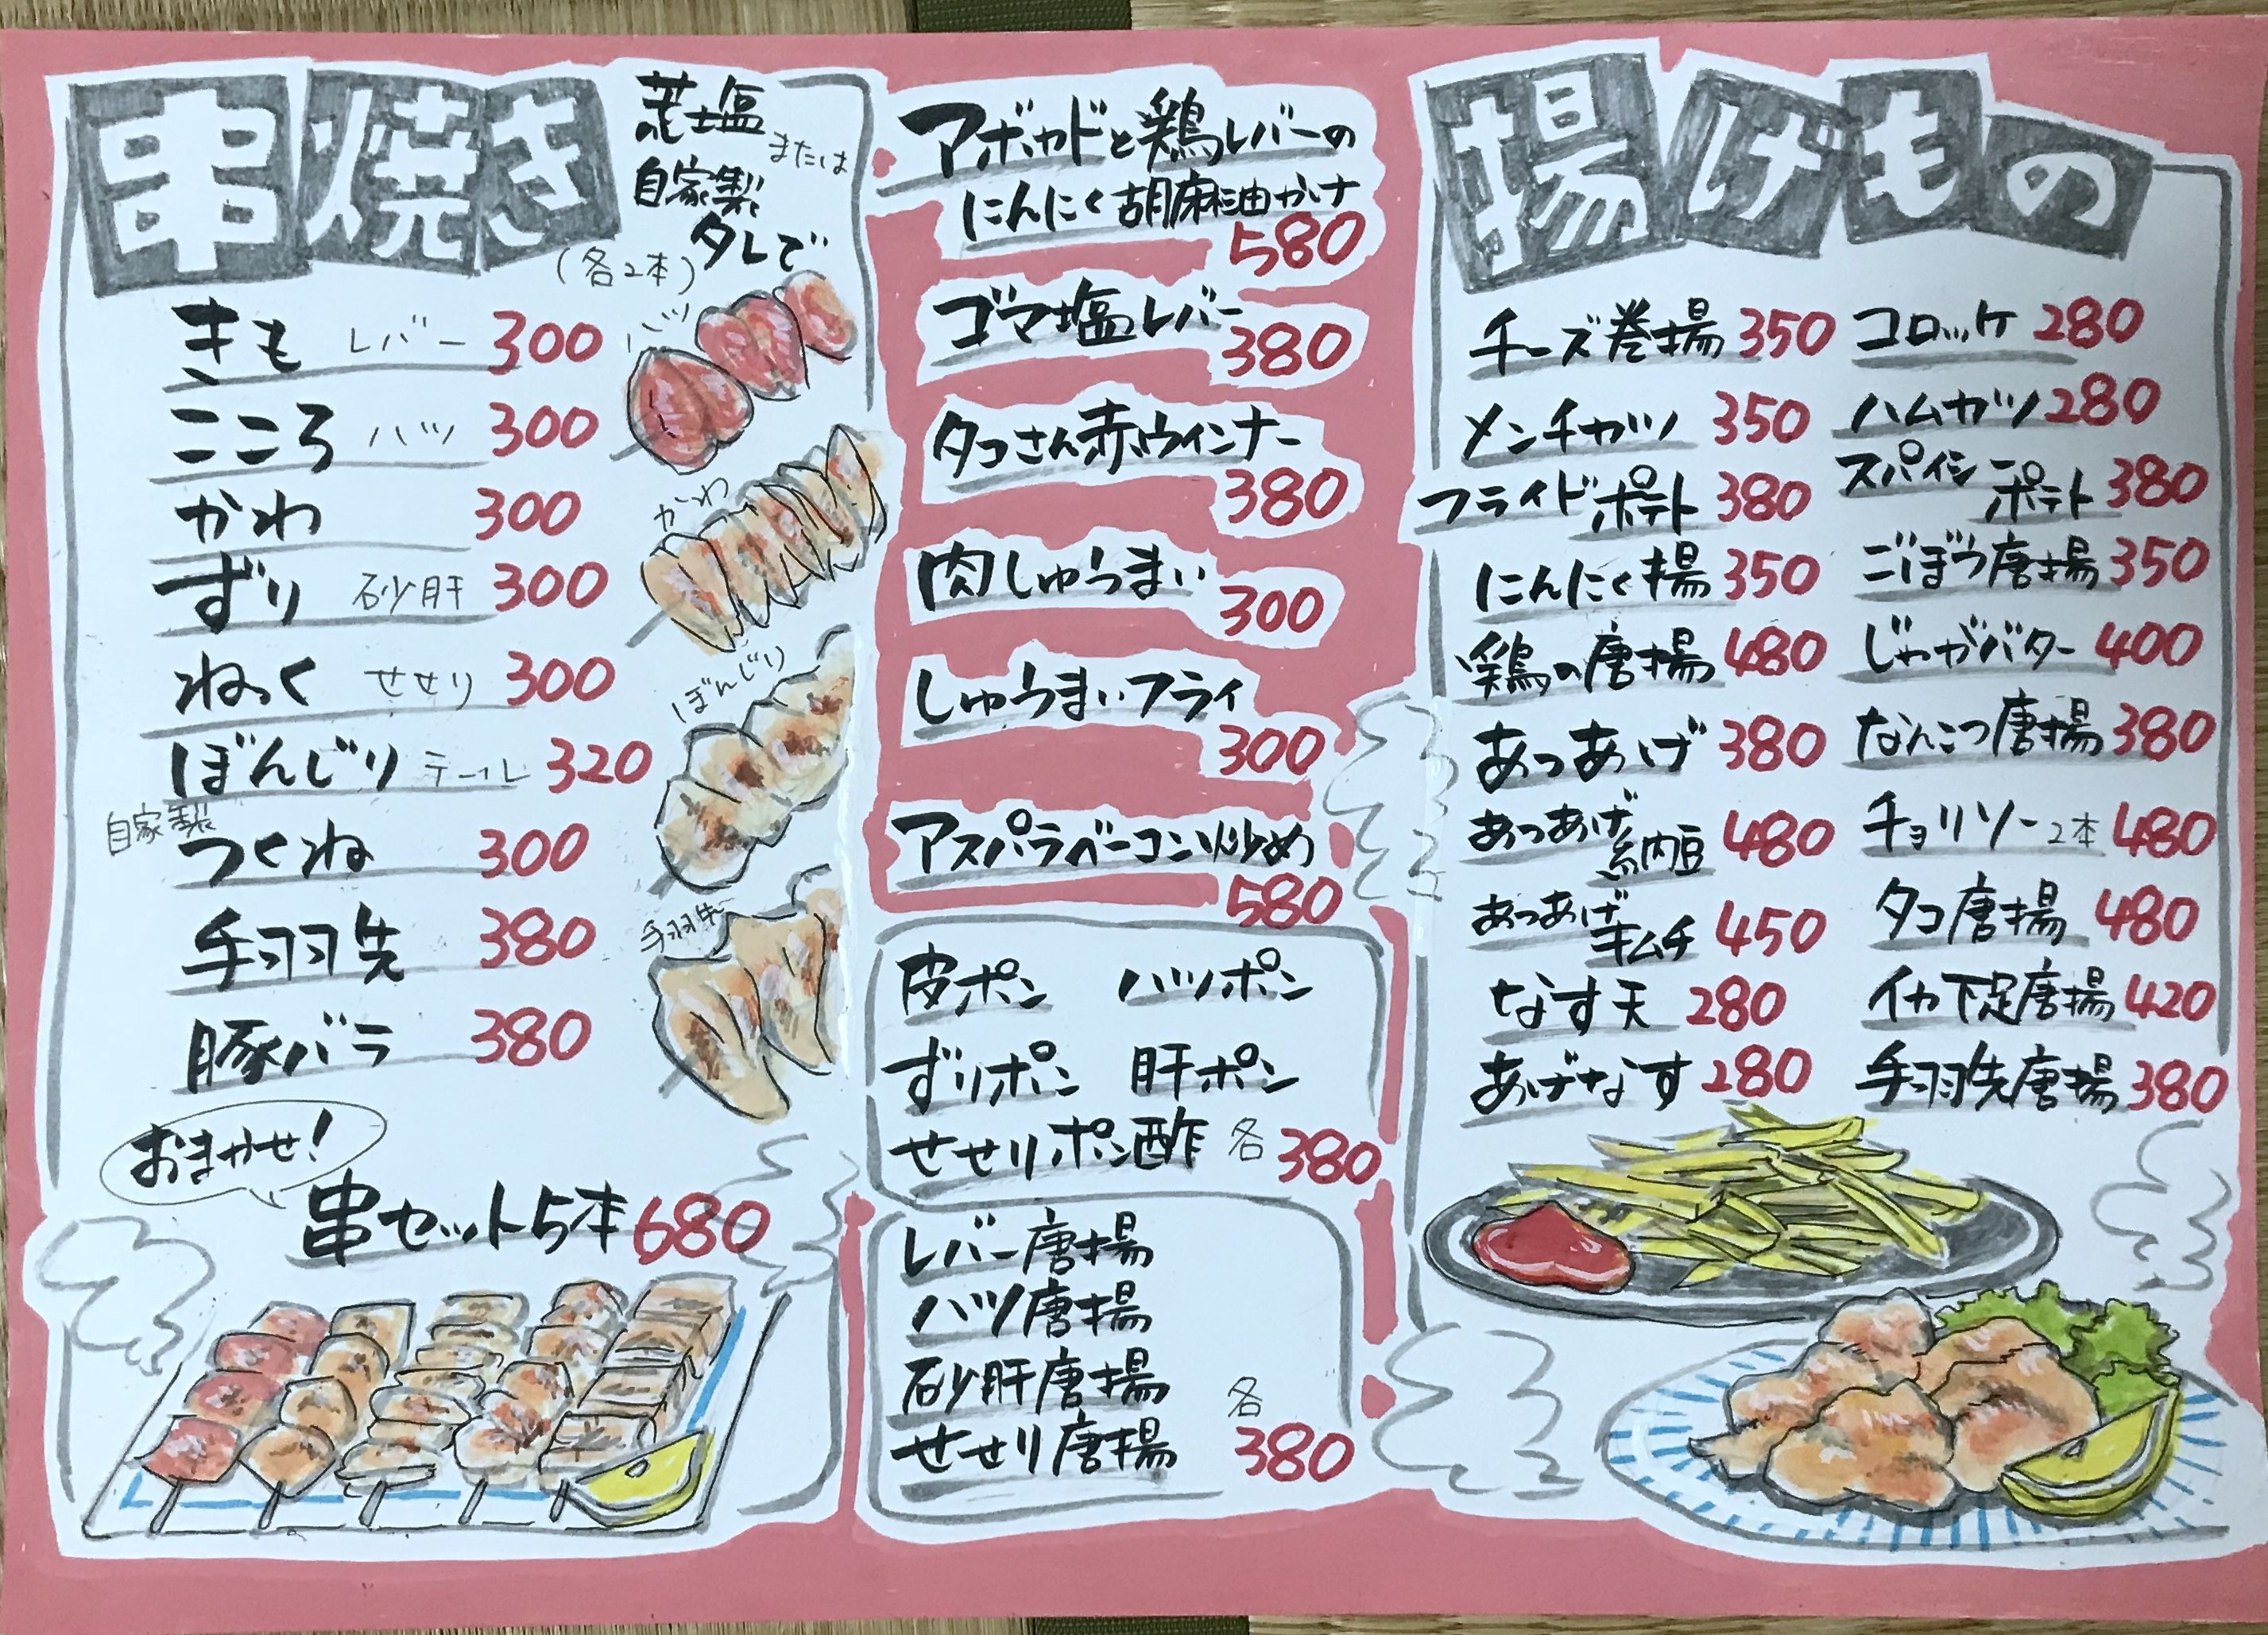 串焼き
荒塩
または
自家製
タレで
(各2本)
きも レバー 300
こころ ハツ 300
かわ 300
ずり 砂肝 300
ねっく せせり 300
ぼんじり テール 320
自家製
つくね 300
手羽先 380
豚バラ 380
ハツ
かわ
ぼんじり
手羽先
おまかせ!
串セット5本 680
アボカドと鶏レバーの
にんにく胡麻油かけ
580
ゴマ塩レバー
380
タコさん赤ウィンナー
380
肉しゅうまい
300
しゅうまいフライ
300
アスパラベーコン炒め
580
皮ポン ハツポン
ずりポン 肝ポン
せせりポン酢 各380
レバー唐揚
ハツ唐揚
砂肝唐揚
せせり唐揚
各
380
揚げもの
チーズ巻揚 350
メンチカツ 350
フライドポテト 380
にんにく揚 350
鶏の唐揚 480
あつあげ 380
あつあげ納豆 480
あつあげキムチ 450
なす天 280
あげなす 280
コロッケ 280
ハムカツ 280
スパイシーポテト 380
ごぼう唐揚 350
じゃがバター 400
なんこつ唐揚 380
チョリソー2本 480
タコ唐揚 480
イカ下足唐揚 420
手羽先唐揚 380